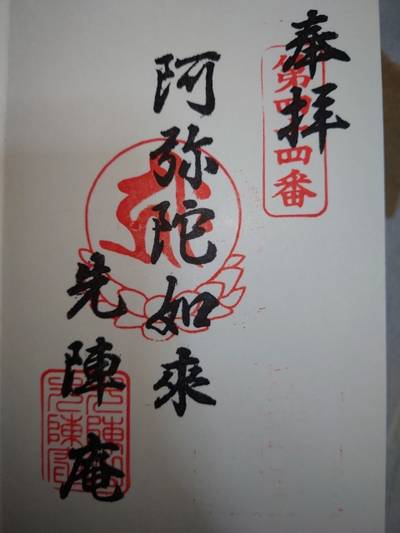 奉拝
第四十四番
阿弥陀如来
先陣庵